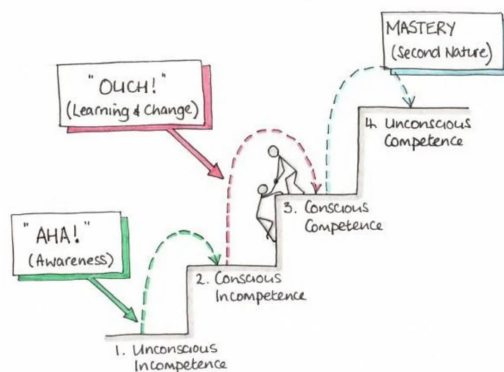 MASTERY
(Second Nature)
"OUCH!"
(Learning & Change)
4. Unconscious
Competence
3. Conscious
Competence
"AHA!"
(Awareness)
2. Conscious
Incompetence
1. Unconscious
Incompetence